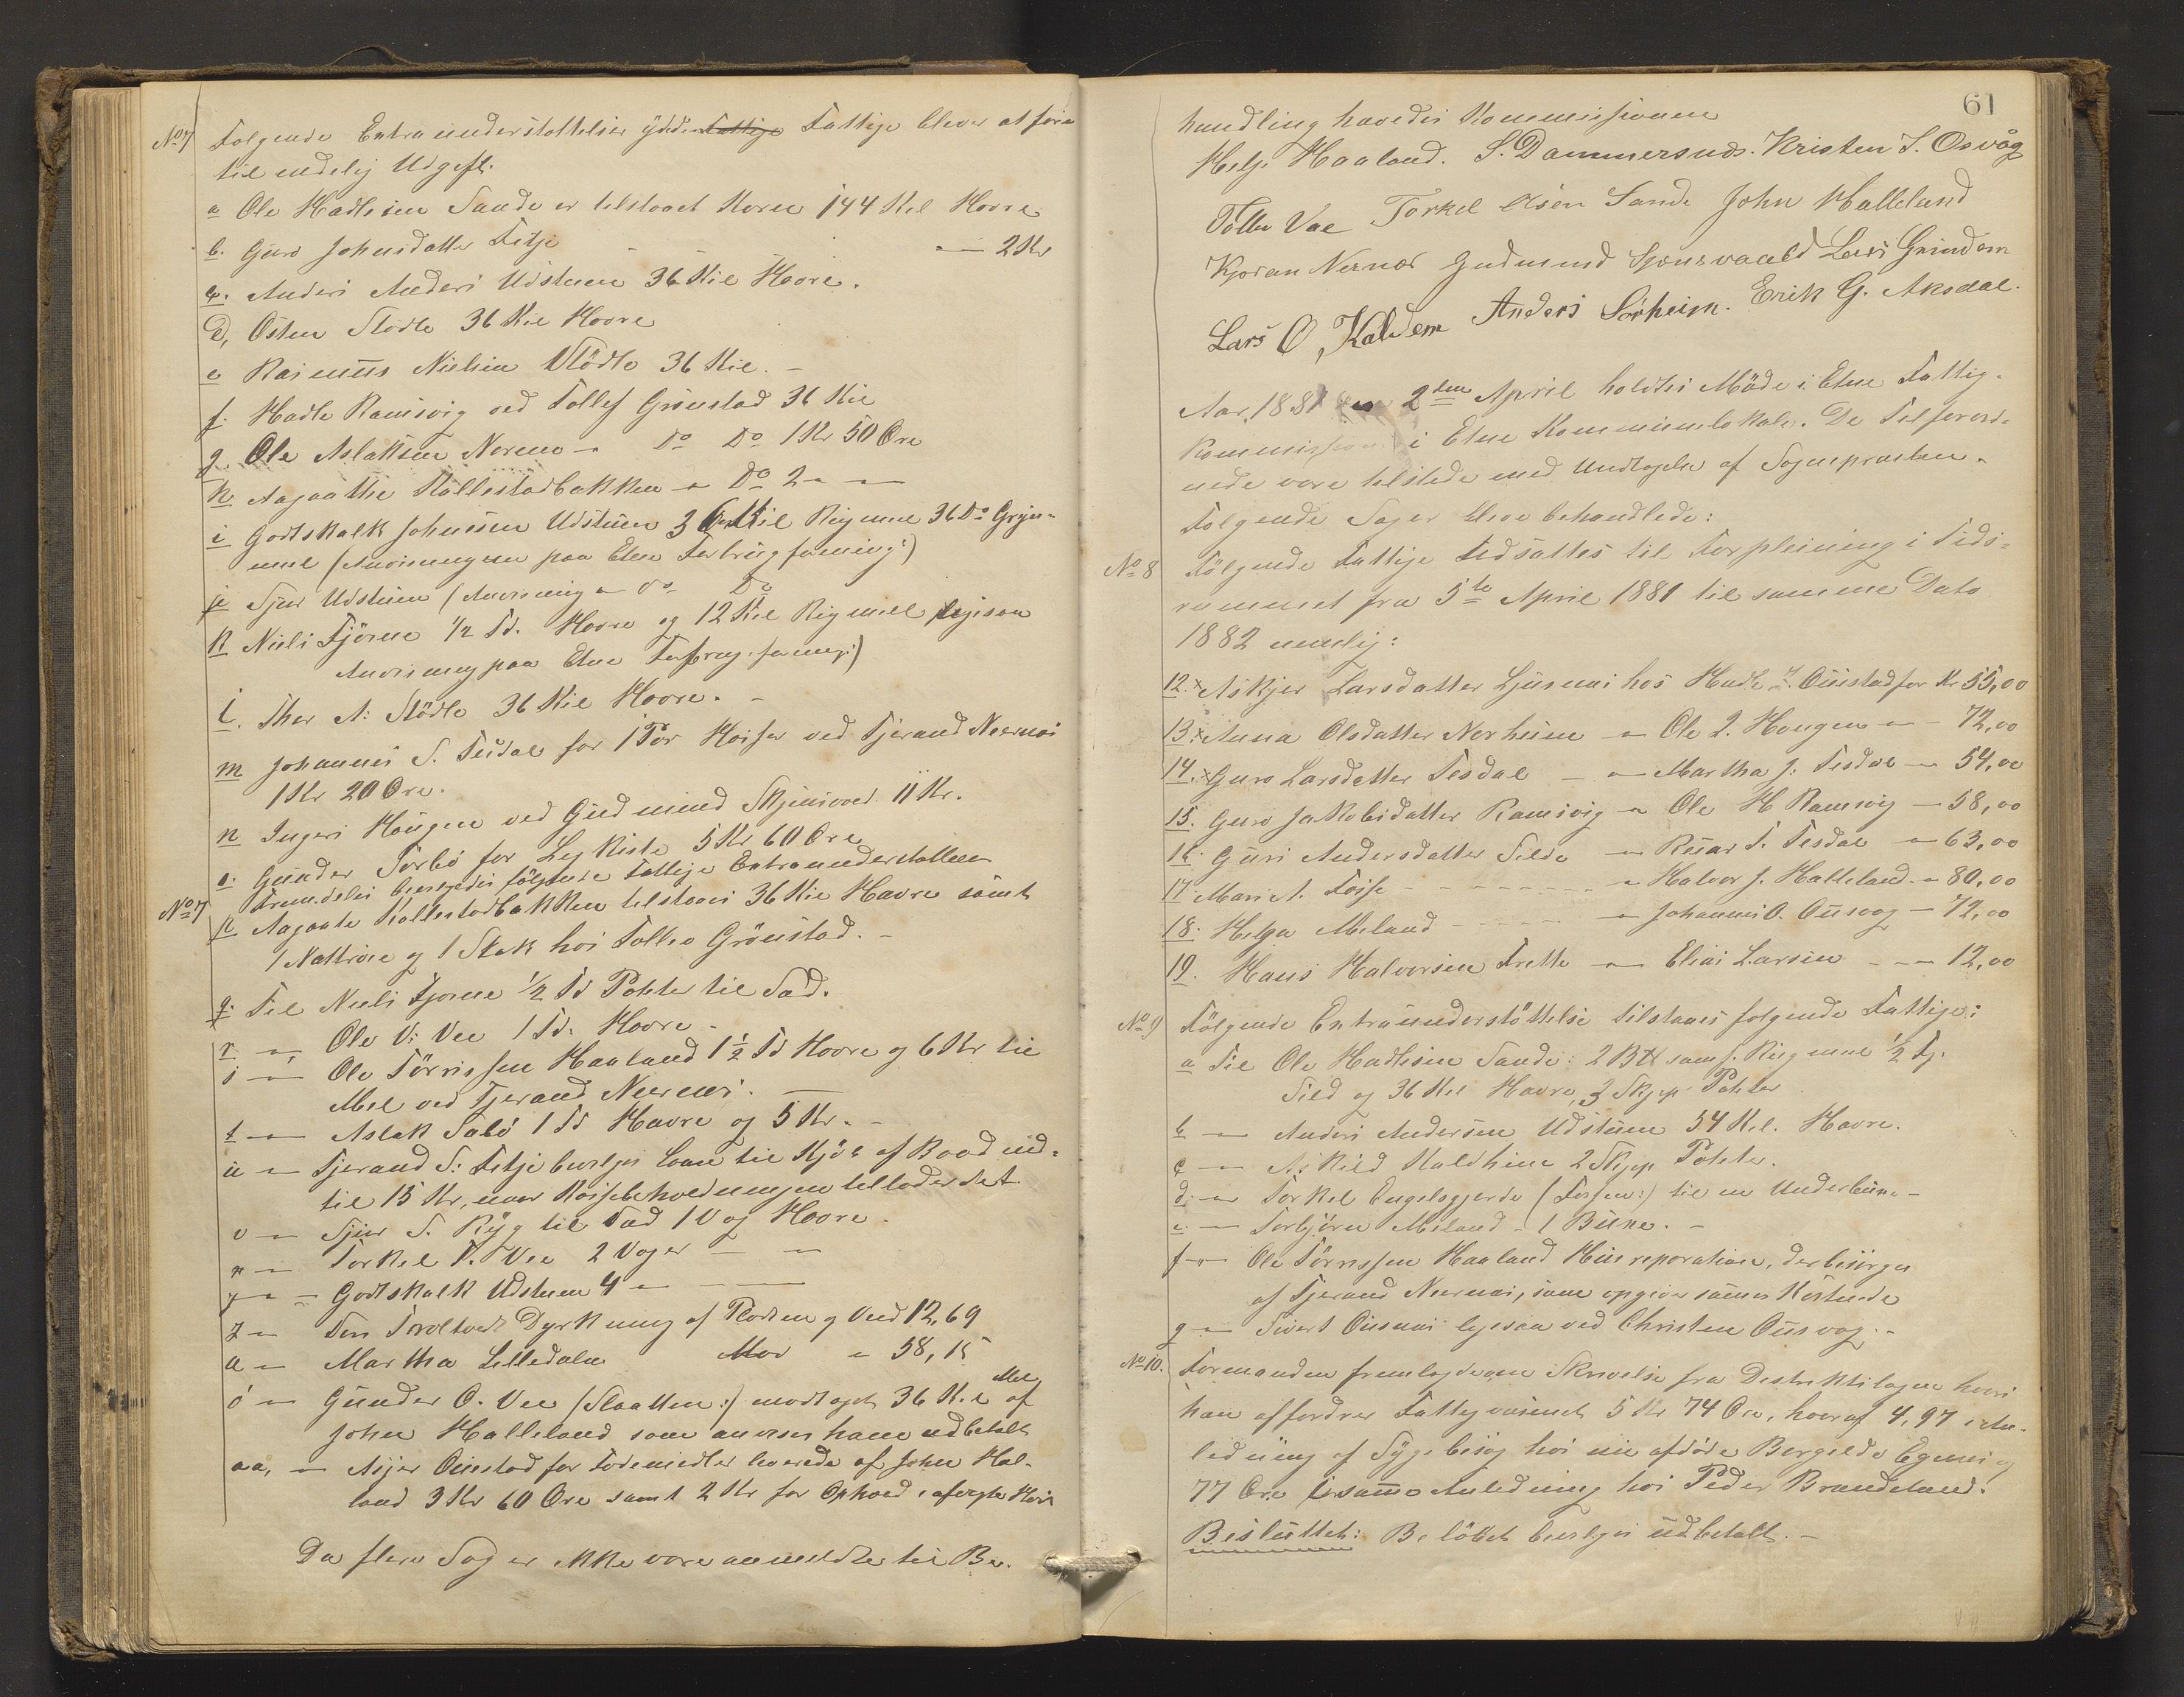 No 7 Følgende Extraunderstøttelser ydede Fattige Fattige blever at føre
til endelig Udgift.
a Ole Hadlesen Sande er tilstaaet Korn 144 Kil Havre
b. Guro Johnsdatter Fitje - - - 2 Kr
c. Anders Anders Udstuen 36 Kil Havre.
d, Østen Stødle 36 Kil Havre
e Rasmus Nielsen Stødle 36 Kil. -
f. Hadle Ramsvig ved Tollef Grønstad 36 Kil
g. Ole Aslaksen Norem - Do Do 1 Kr 50 Øre
h Aagaathe Kallestadbakken - Do 2 - -
i Godtskalk Johnsen Udstuen 36 Kil Rigmel 36 Do Gryn-
mel (Anvisningen paa Etne Forbrugsforening:)
j Sjur Udstuen (Anvisning - Do Do
k Niels Fjøsne 1/2 Td. Havre og 12 Kil Rigmel ligesom
Anvisning paa Etne Forbrugsforening:)
l. Thor A: Stødle 36 Kil Havre. -
m Johannes S. Tesdal for 1 Par Hoser ved Tjerand Neernæs
1 Kr 20 Øre.
n Ingeri Hougen ved Gudmund Skjensvold 11 Kr.
o. Gunder Sørbø for Ligkiste 5 Kr 60 Øre
No 7 Fremdeles bevilgedes følgende Fattige Extraunderstøttelse
p Agaate Kallestadbakken tilstaaes 36 Kil Havre samt
1 Nattrøie og 1 Stak hos Tolleiv Grønstad. -
q. Til Niels Fjøsne 1/2 Td Poteter til Sæd.
r - Ole V: Vee 1 Td. Havre -
s - Ole Tørrissen Haaland 1 1/2 Td Havre og 6 Kr til
Mel ved Tjerand Neernæs. -
t - Aslak Sæbø 1 Td Havre og 5 Kr. -
u - Tjerand S: Fitje bevilges Laan til Kjøb af Baad ind-
til 15 Kr, naar Kassebeholdningen tillader det
v - Sjur S. Ryg til Sæd 1 Vog Havre.
x - Torkel T. Vee 2 Voger - -
y - Godtskalk Udstuen 4 - -
z - Dyrkning af Ved 12,69
æ - Martha Lilledalen - 58,15
ø - Gunder O. Vee (Slaatten:) modtaget 36 Kil Mel af
John Halleland som anvises ham udbetalt
aa, - Asjer Ouestad for Fødemidler leverede af John Hal-
land 3 Kr 60 Øre samt 2 Kr for Ophold
Da flere Sager ikke vare anmeldte til Be-
61
handling hævedes Kommissionen
Helje Haaland. S. Dammersnes. Kristen J. Osvåg
Tollev Vae Torkel Olsen Sande John Halleland
Kjøran Nernæs Gudmund Skjensvaald Lars Grindem
Lars O, Kaldem Anders Sørheim. Erik G. Aksdal.
Aar, 1881 den 2den April holdtes Møde i Etne Fattig-
kommission i Etne Kommunelokale. De Tilforord-
nede vare tilstede med Undtagelse af Sognepræsten.
Følgende Sager bleve behandlede:
No 8 Følgende Fattige udsattes til Forpleining i Tids-
rummet fra 5te April 1881 til samme Dato
1882 nemlig:
12. x Askjer Larsdatter Ljusnæs hos Hadle J. Ouestad for Kr 55,00
13. x Anna Olsdatter Norheim - Ole L. Hougen - - 72,00
14. x Guro Larsdatter Tesdal - - Martha J. Tesdal - 54,00
15. Guro Jakobsdatter Ramsvig - Ole H Ramsvig - 58,00
16. Guri Andersdatter Silde - Roar T. Tesdal - 63,00
17 Mari A. Tøsse - - - - - - - Halvor J. Halleland - 80,00
18. Helga Meland - - - - - Johannes O. Ousvog - 72,00
19. Hans Halvorsen Frette - Elias Larsen - - - 12,00
No 9 Følgende Extraunderstøttelse tilstaaes følgende Fattige:
a Til Ole Hadlesen Sande: 2 Rigmel 1/2 Tj.
Sild og 36 Kil Havre, 3 Skjep Poteter.
b - Anders Andersen Udstuen 54 Kil. Havre.
c - Askild Kaldheim 2 Skjep Poteter.
d. - Torkel Engelsgjerde (Fossen:) til en Underbuxe -
e. - Torbjørn Meland - 1 Buxe. -
f - Ole Tørrissen Haaland Husreparation, der besørges
af Tjerand Neernæs, som opgiver sammes Kostende
g - Sivert Ousnæs ligesaa ved Christen Ousvog. -
No 10. Formanden fremlagde en Skrivelse fra Distriktslægen hvori
han affordrer Fattigvæsenet 5 Kr 74 Øre, hvoraf 4,97 i An-
ledning af Sygebesøg hos nu afdøde Bergilde Egenes og
77 Øre i samme Anledning hos Peder Brandeland.
Besluttet: Beløbet bevilges udbetalt. -